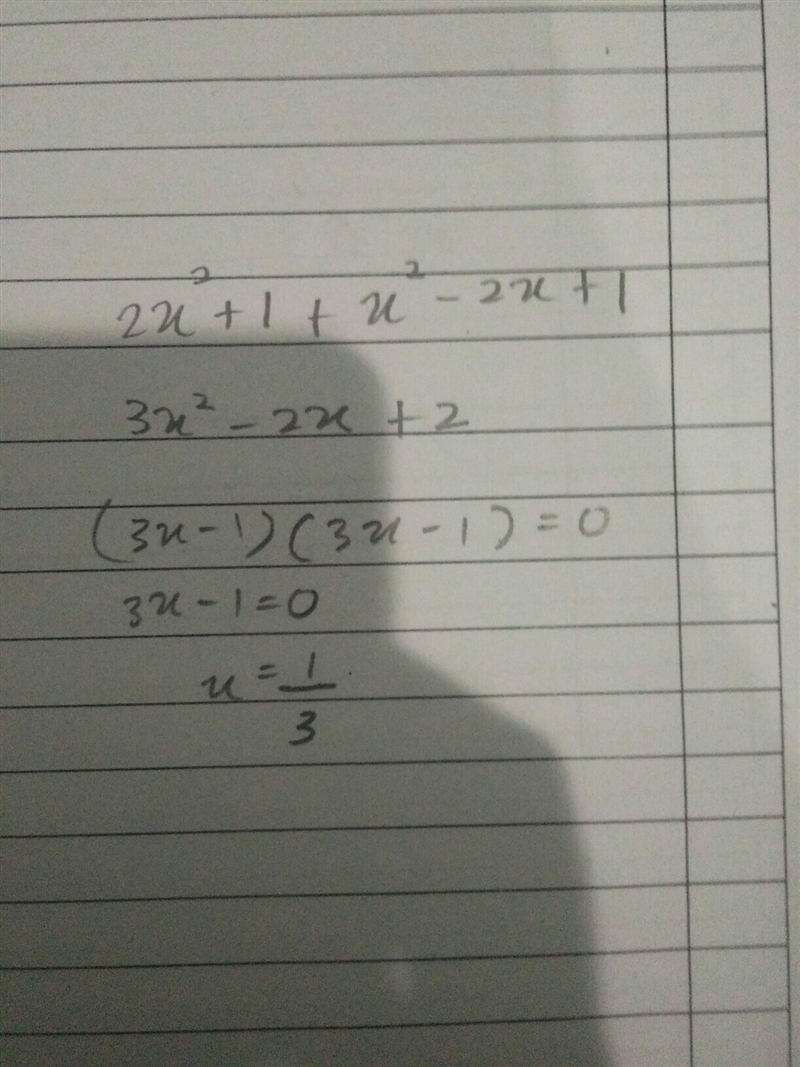 2x² + 1 + x² - 2x + 1
3x² - 2x + 2
(3x - 1) (3x - 1) = 0
3x - 1 = 0
x = 1/3